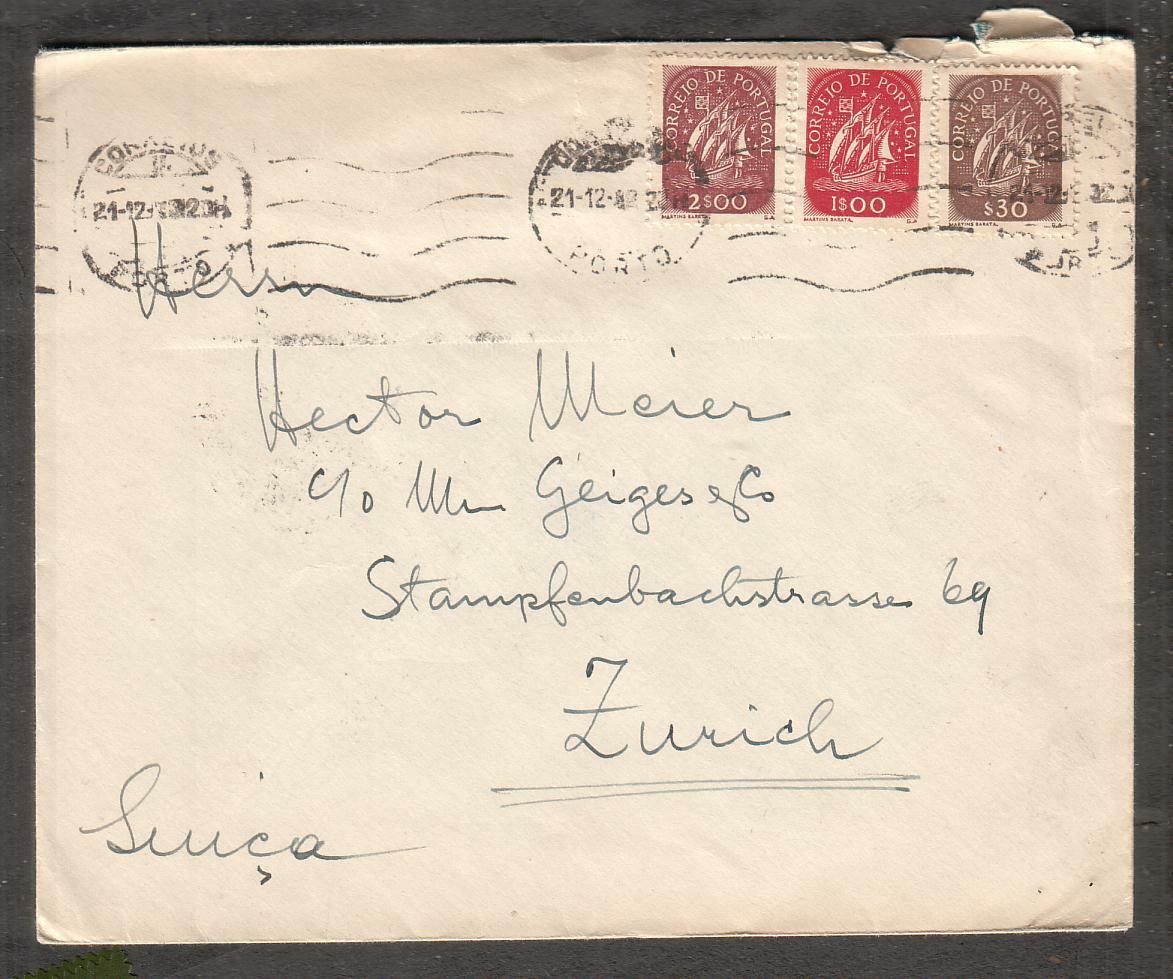 CORREIO DE PORTUGAL
2$00
MARTINS BARATA. G.A.
CORREIO DE PORTUGAL
1$00
MARTINS BARATA. G.A.
CORREIO DE PORTUGAL
$30
MARTINS BARATA. G.A.
21-12
PORTO
21-12
PORTO
Herrn
Hector Meier
c/o Geiges & Co
Stampfenbachstrasse 69
Zurich
Suiça